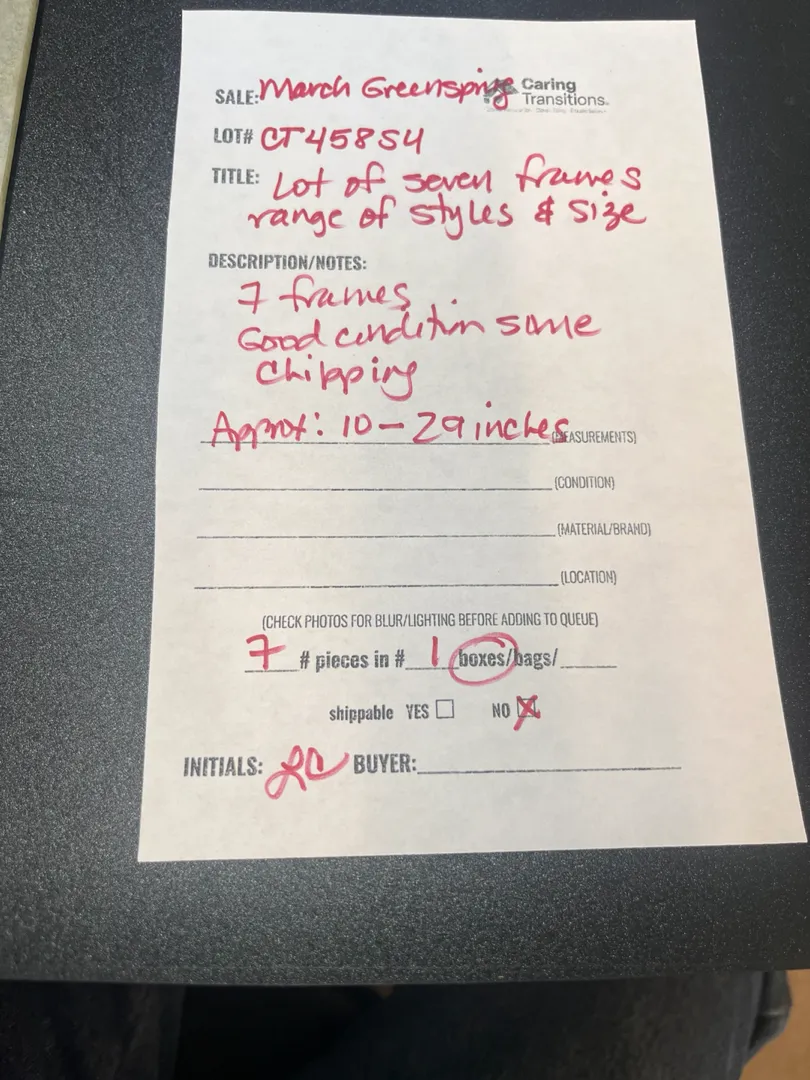 SALE: March Greenspring Caring Transitions.
LOT# CT458S4
TITLE: Lot of seven frames
range of styles & size
DESCRIPTION/NOTES:
7 frames
Good condition some
Chipping
Approx: 10-29 inches (MEASUREMENTS)
(CONDITION)
(MATERIAL/BRAND)
(LOCATION)
(CHECK PHOTOS FOR BLUR/LIGHTING BEFORE ADDING TO QUEUE)
7 # pieces in # 1 boxes/bags/
shippable YES NO
INITIALS: BUYER: